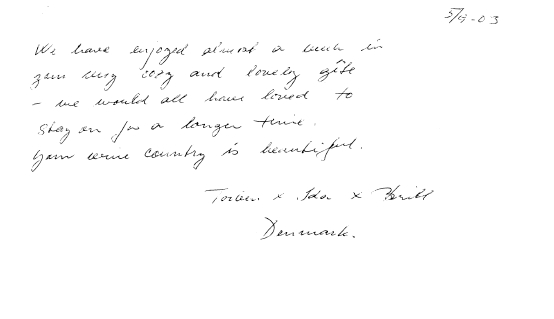 5/9-03
We have enjoyed almost a week in
your very cosy and lovely gîte
- we would all have loved to
stay on for a longer time.
Your wine country is beautiful.
x Ida x
Denmark.